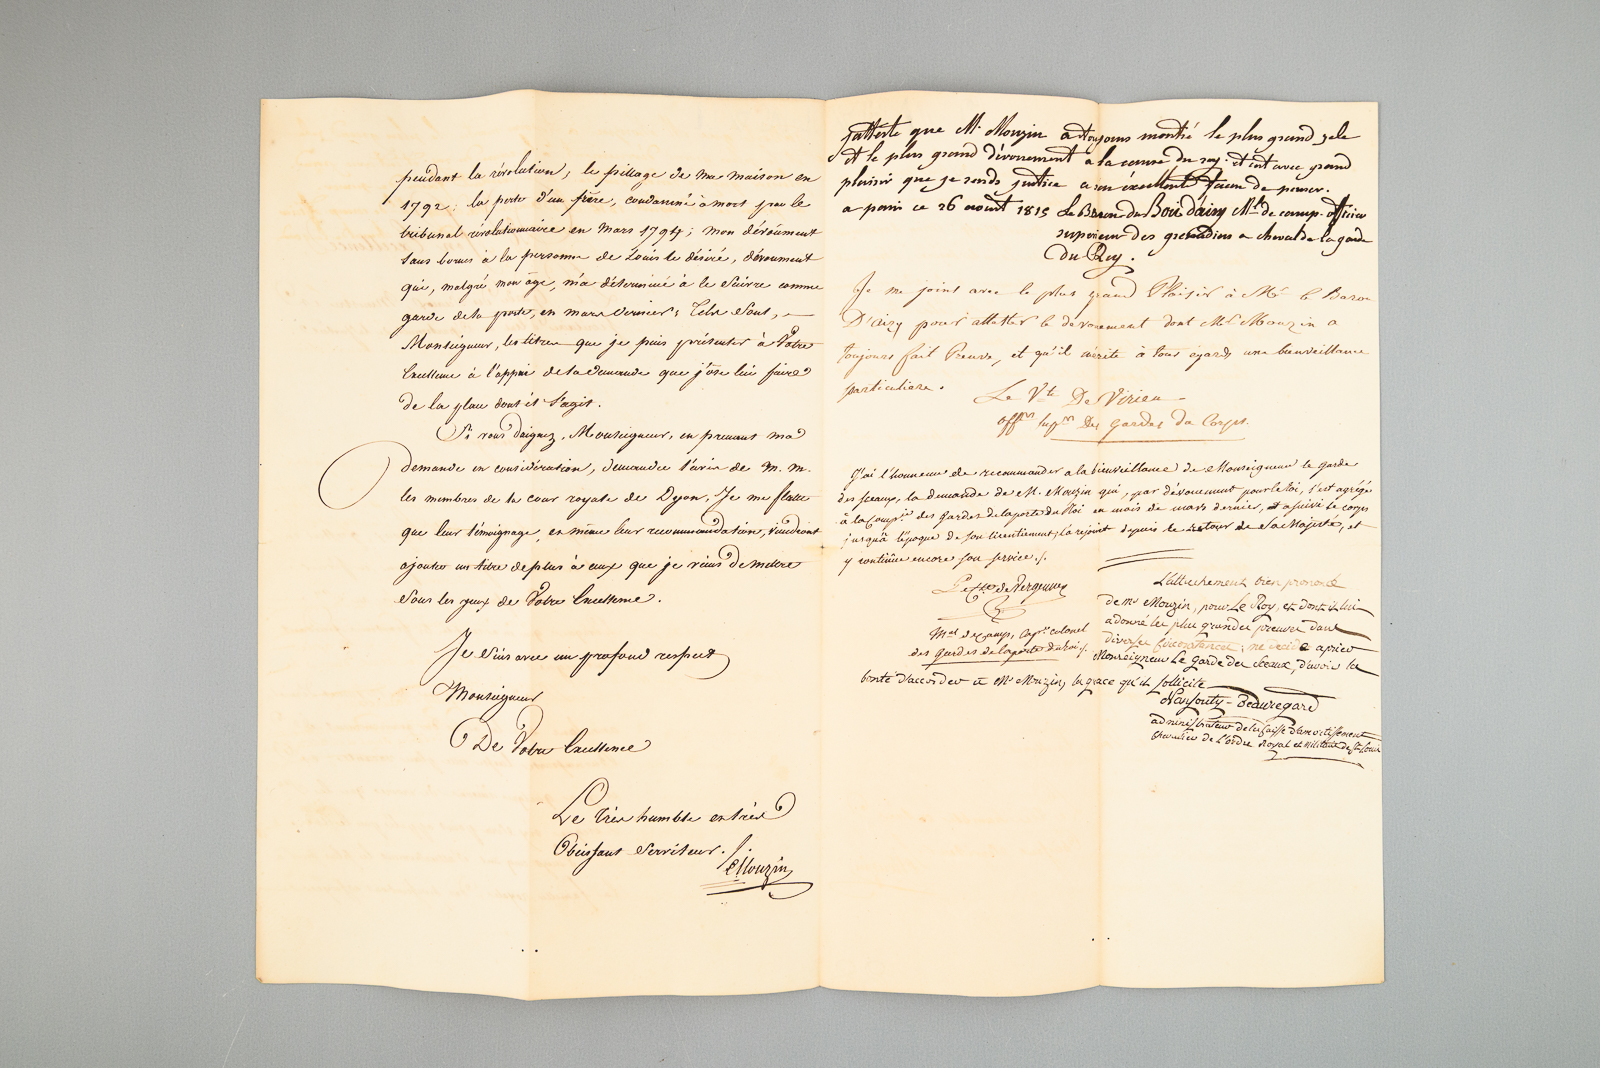 pendant la révolution, le pillage de ma maison en
1792; la perte d'un frère, condamné à mort par le
tribunal révolutionnaire en Mars 1794; mon dévoûment
sans bornes à la personne de Louis le désiré, dévoument
qui, malgré mon âge, m'a déterminé à le suivre comme
garde de la porte, en mars dernier; tels sont,
Monseigneur, les titres que je puis présenter à Votre
Excellence à l'appui de la demande que j'ose lui faire
de la place dont il s'agit.
Si vous daignez, Monseigneur, en prenant ma
demande en considération, demander l'avis de M. M.
les membres de la cour royale de Dijon, Je me flatte
que leur témoignage, et même leur recommandation, viendront
ajouter un titre de plus à ceux que je viens de mettre
sous les yeux de Votre Excellence.
Je suis avec un profond respect
Monseigneur
De Votre Excellence
Le très humble et très
Obeissant Serviteur.
Mouzin
J'atteste que Mr. Mouzin a toujours montré le plus grand zele
et le plus grand dévouement a la cause du roy. et c'est avec grand
plaisir que je rends justice a son excellent facon de penser.
a paris ce 26 aout 1815 Le Baron du Bois d'aisy Mal. de camp. officier
superieur des grenadiers a cheval de la garde
du Roy.
Je me joint avec le plus grand Plaisir à Mr. le Baron
D'aisy pour attester le devouement dont Mr. Mouzin a
toujours fait Preuve, et qu'il mérite à tous égards une bienveillance
particuliere.
Le Vte De Virieu
offer. supr. Des gardes du Corps.
J'ai l'honneur de recommander a la bienveillance de Monseigneur le garde
des sceaux, la demande de M. Mouzin qui, par dévouement pour le roi, s'est agrégé
à la Compie. des gardes de la porte du Roi en mois de mars dernier, et a suivi le corps
jusqu'à l'époque de son licentiement, l'a rejoint depuis le retour de Sa Majesté, et
y continüe encore son service./.
Le Cte de Vergennes
Mal. de Camp, Capne. colonel
des gardes de la porte du Roi./.
L'attachement bien prononcé
de Mr Mouzin, pour Le Roy, et dont il lui
a donné les plus grandes preuves dans
diverses circonstances, me decide a prier
Monseigneur Le garde des sceaux, d'avoir la
bonté d'accorder a Mr Mouzin, la grace qu'il sollicite
Nansouty-Beauregard
administrateur de la Caisse d'amortissement
chevalier de L'ordre Royal et militaire de St. Louis